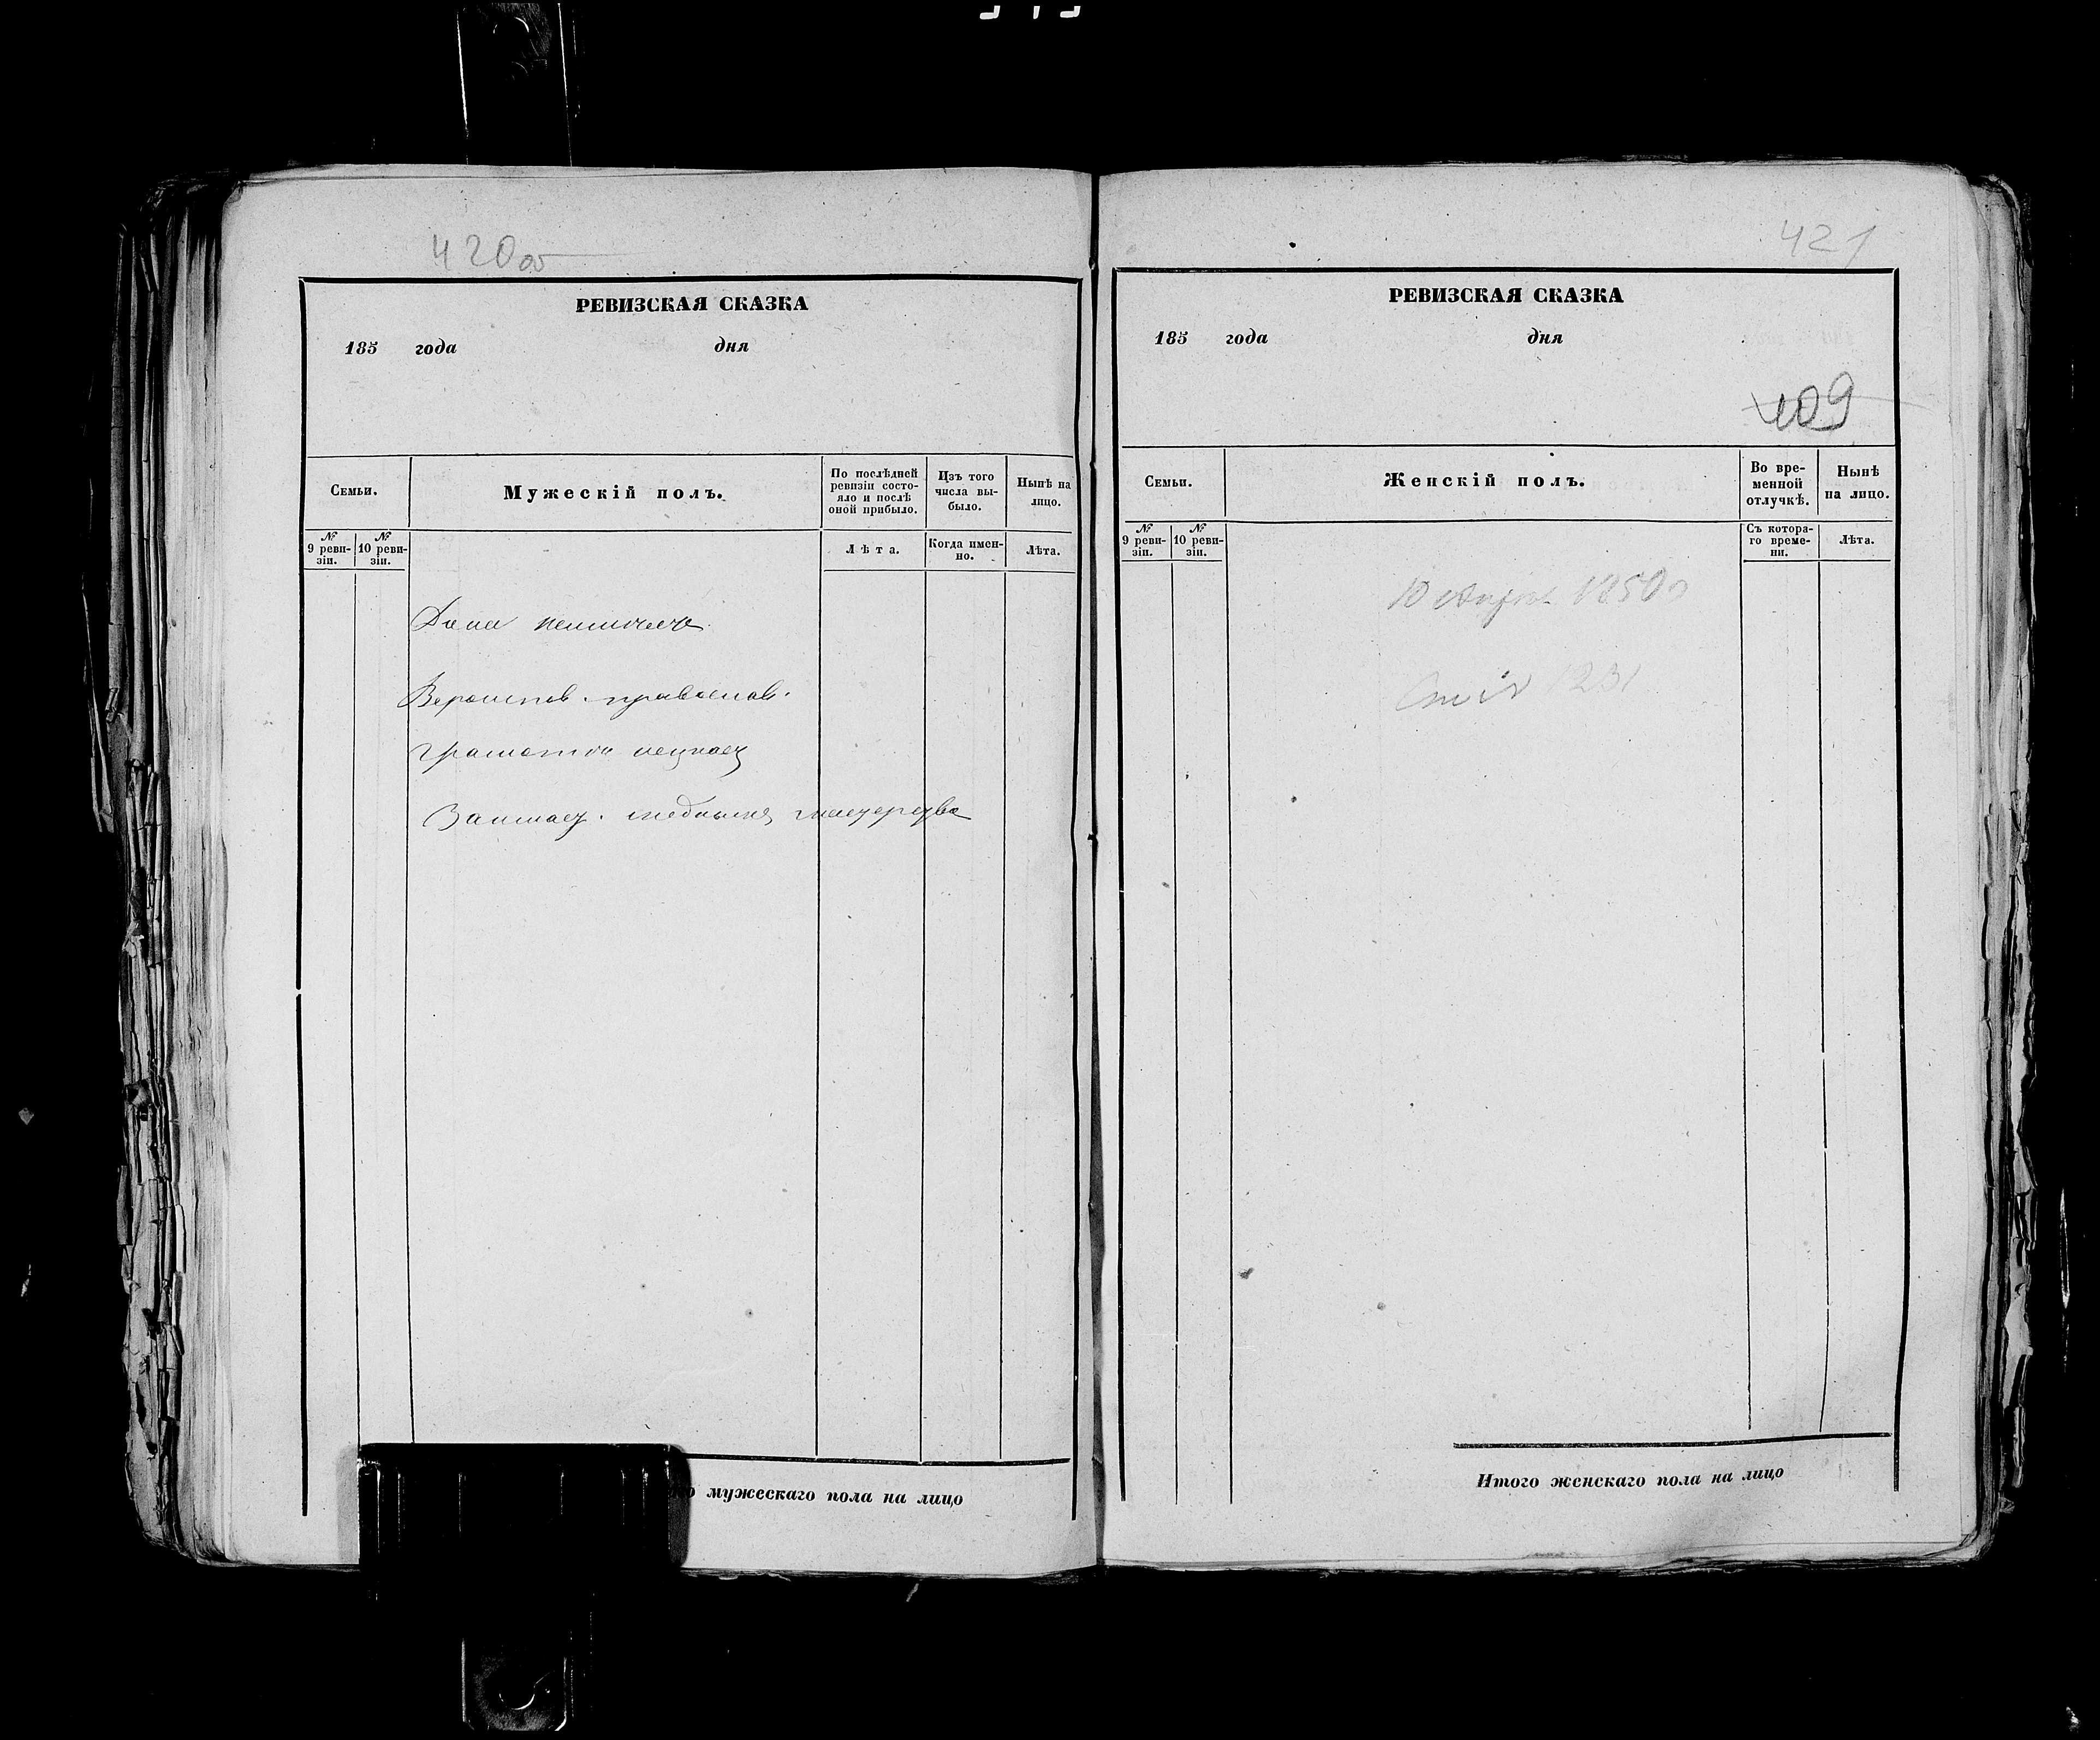 420об
РЕВИЗСКАЯ СКАЗКА
185 года дня
Семьи.
Мужескій полъ.
По послѣдней ревизіи состояло и послѣ оной прибыло.
Цзъ того числа выбыло.
Нынѣ на лицо.
№ 9 ревизіи.
№ 10 ревизіи.
Лѣта.
Когда именно.
Лѣта.
Дома неимѣетъ
Вероиспов. православ.
Грамоты незнаетъ
Занимает. меднымъ мастерство
мужескаго пола на лицо
421
РЕВИЗСКАЯ СКАЗКА
185 года дня
409
Семьи.
Женскій полъ.
Во временной отлучкѣ.
Нынѣ на лицо.
№ 9 ревизіи.
№ 10 ревизіи.
Съ котораго времени.
Лѣта.
10 1850
1231
Итого женскаго пола на лицо